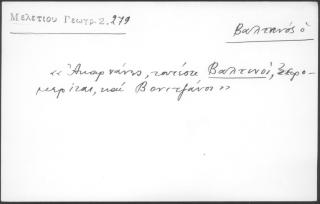 Μελετίου Γεωγρ. 2. 279
Βαλτινός ὁ
«Ἀκαρνάνες, τανῦν Βαλτινοί, Ξηρο-
μερῖται, καὶ Βονιτζάνοι»